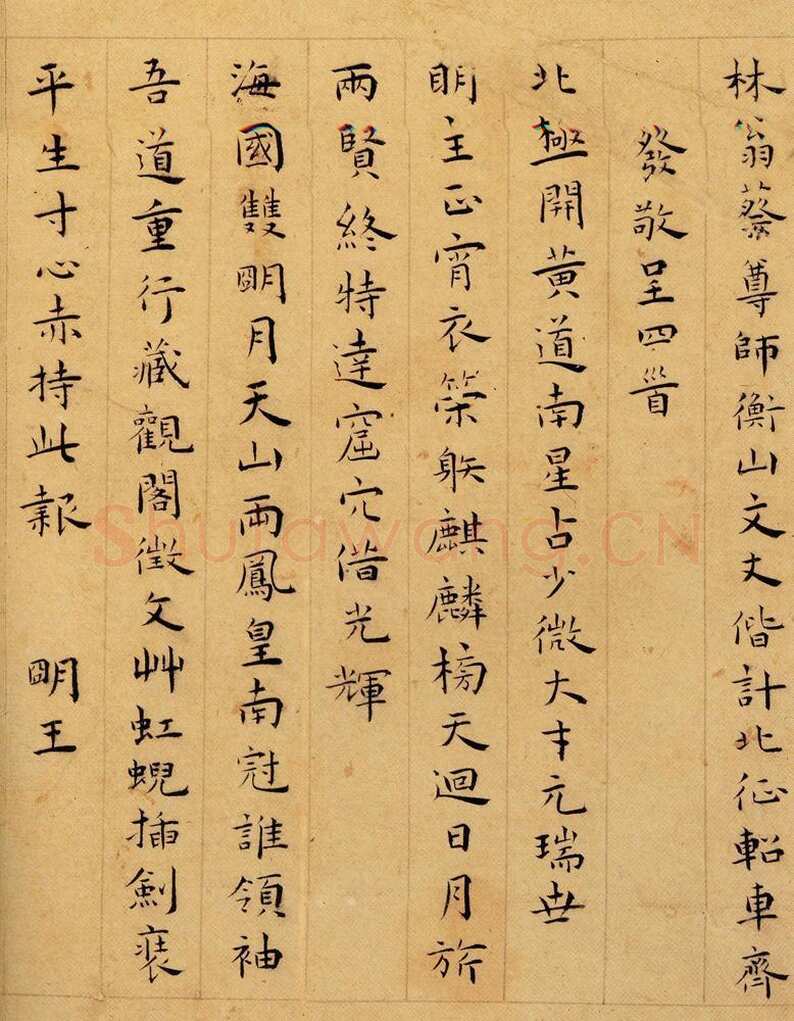 林翁蔡尊師衡山文丈偕計北征軺車齊
發敬呈四首
北極開黃道南星占少微大才元瑞世
明主正宵衣榮映麒麟榜天迴日月旂
兩賢終特達窟穴借光輝
海國雙明月天山兩鳳皇南冠誰領袖
吾道重行藏觀閣徵文艸虹蜺插劍裝
平生寸心赤持此報 明王
Shufawang.CN